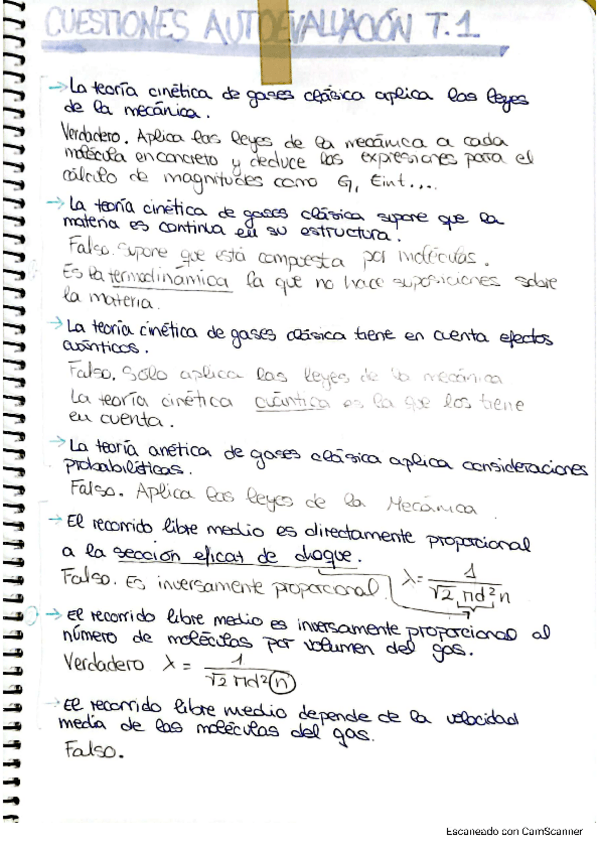 CUESTIONES AUTOEVALUACIÓN T.1
→ La teoría cinética de gases clásica aplica las leyes
de la mecánica.
Verdadero. Aplica las leyes de la mecánica a cada
molécula en concreto y deduce las expresiones para el
cálculo de magnitudes como G, Eint....
→ La teoría cinética de gases clásica supone que la
materia es continua en su estructura.
Falso. Supone que está compuesta por moléculas.
Es la termodinámica la que no hace suposiciones sobre
la materia.
→ La teoría cinética de gases clásica tiene en cuenta efectos
cuánticos.
Falso. Sólo aplica las leyes de la mecánica
La teoría cinética cuántica es la que los tiene
en cuenta.
→ La teoría cinética de gases clásica aplica consideraciones
probabilísticas.
Falso. Aplica las leyes de la Mecánica.
→ El recorrido libre medio es directamente proporcional
a la sección eficaz de choque.
Falso. Es inversamente proporcional λ = 1 / √2 πd²n
→ El recorrido libre medio es inversamente proporcional al
número de moléculas por volumen del gas.
Verdadero λ = 1 / √2 πd²n
→ El recorrido libre medio depende de la velocidad
media de las moléculas del gas.
Falso.
Escaneado con CamScanner